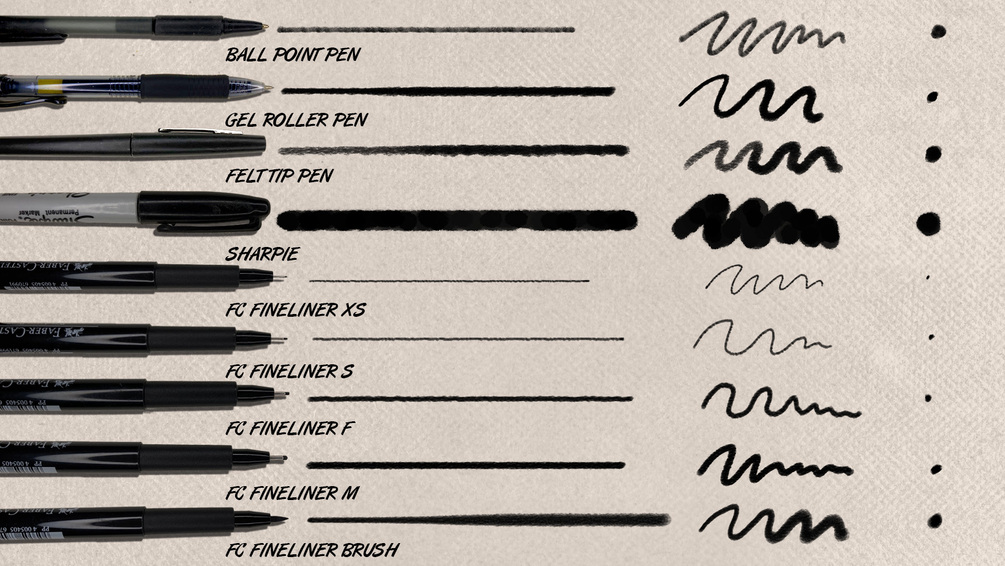 BALL POINT PEN
GEL ROLLER PEN
FELT TIP PEN
Sharpie
Permanent Marker
SHARPIE
FABER-CASTEL
FC FINELINER XS
FABER-CASTE
FC FINELINER S
FABER-CA
FC FINELINER F
FC FINELINER M
FC FINELINER BRUSH